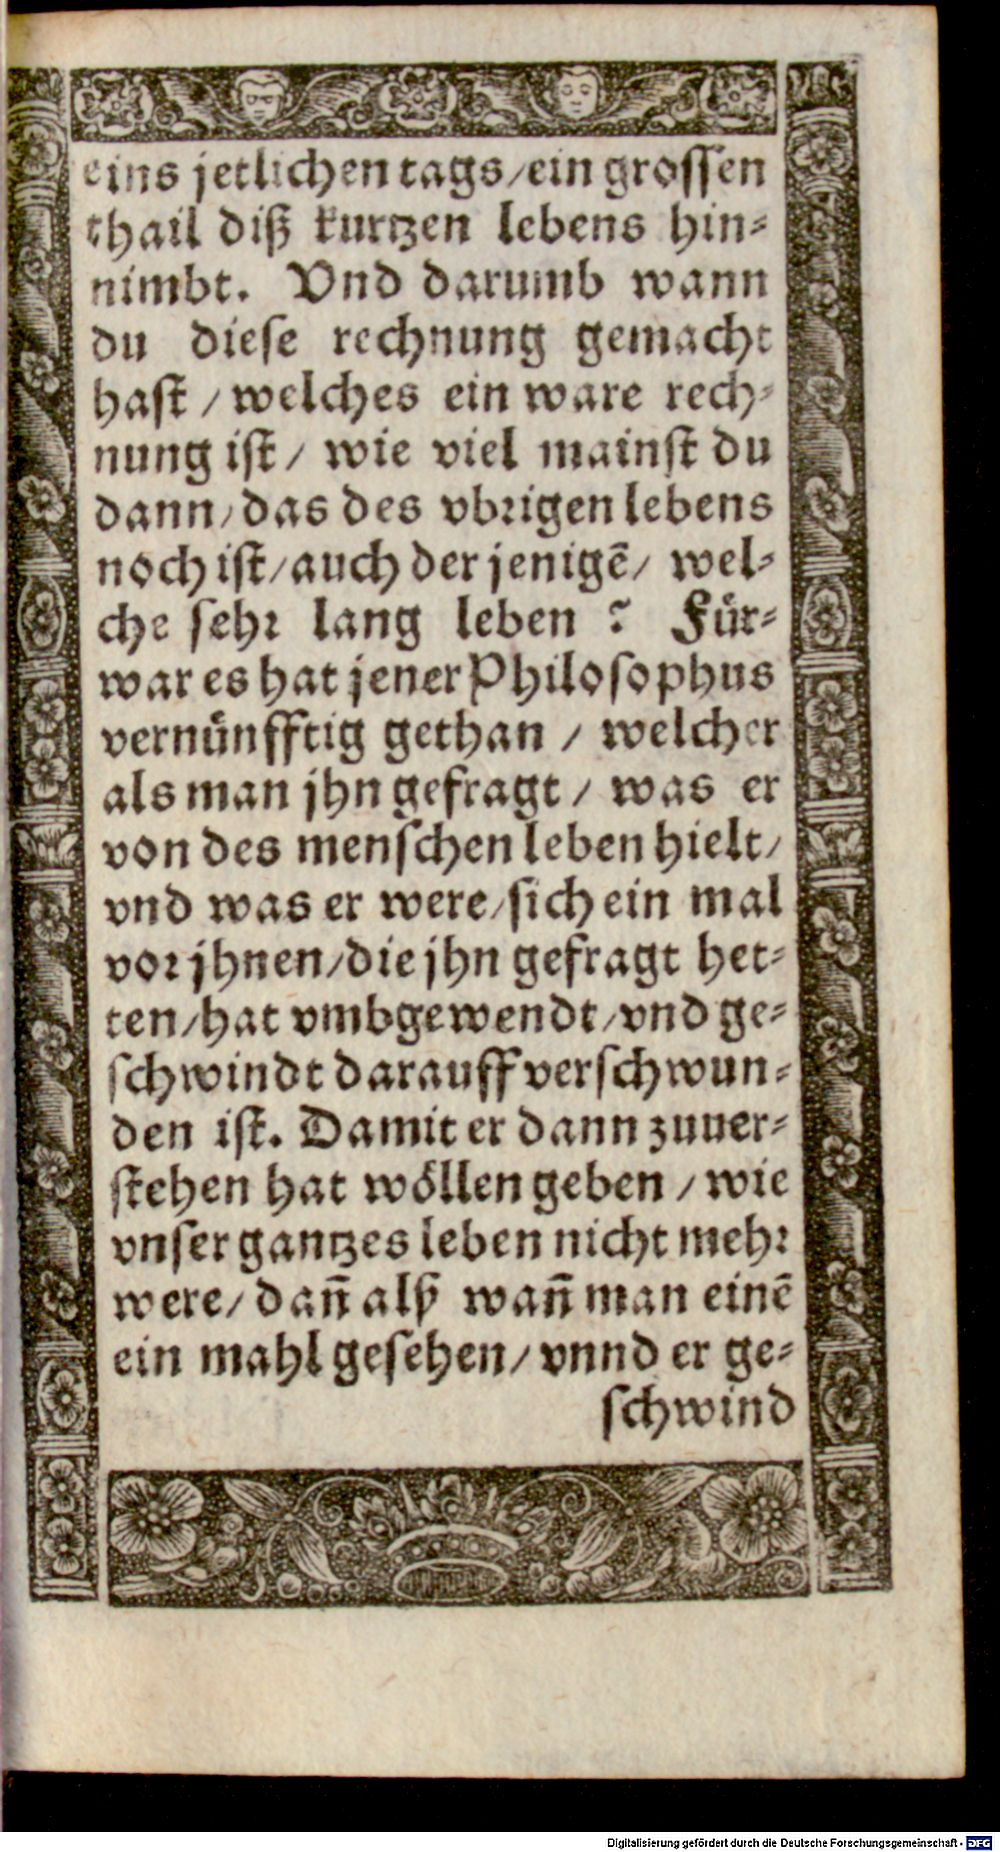 eins jetlichen tags/ein grossen
thail diß kurtzen lebens hin-
nimbt. Vnd darumb wann
du diese rechnung gemacht
hast / welches ein ware rech-
nung ist / wie viel mainst du
dann/das des vbrigen lebens
noch ist/auch der jenigē/ wel-
che sehr lang leben ? Fuͤr-
war es hat jener Philosophus
vernuͤnfftig gethan / welcher
als man jhn gefragt / was er
von des menschen leben hielt/
vnd was er were/sich ein mal
vor jhnen/die jhn gefragt het-
ten/hat vmbgewendt/vnd ge-
schwindt darauff verschwun-
den ist. Damit er dann zuuer-
stehen hat woͤllen geben / wie
vnser gantzes leben nicht mehr
were/ dañ alß wañ man einē
ein mahl gesehen/ vnnd er ge-
schwind
Digitalisierung gefördert durch die Deutsche Forschungsgemeinschaft - DFG